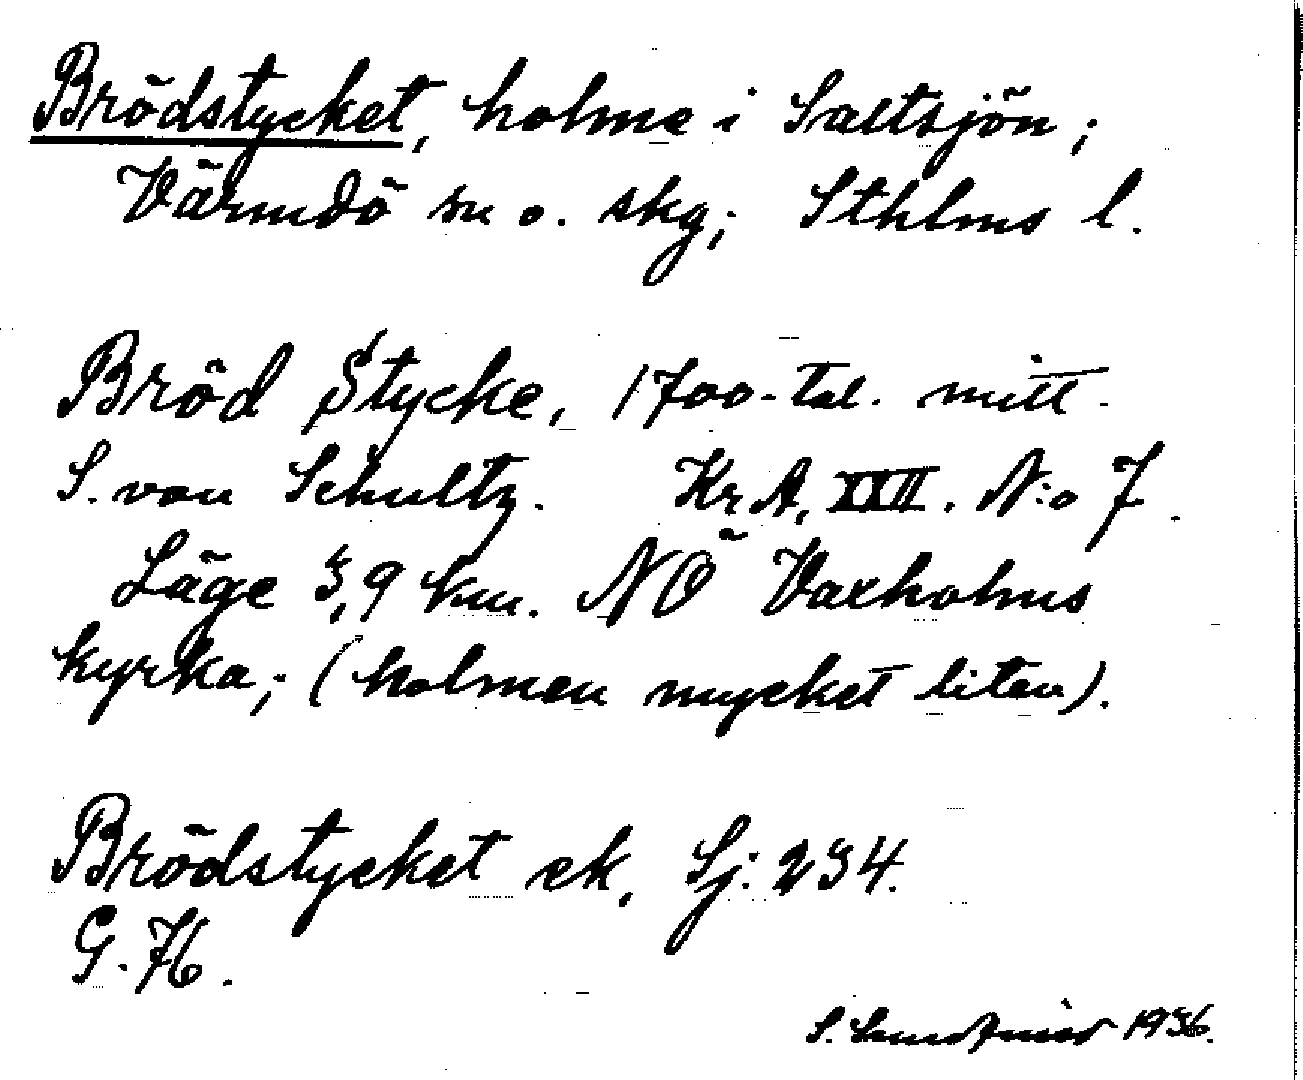 Brödstycket, holme i Saltsjön;
Värmdö sn o. skg; Sthlms l.
Bröd Stycke, 1700-tal. mitt.
S. von Schultz. Kr A, XXII. N:o 7.
Läge 3,9 km. NÖ Vaxholms
kyrka; (holmen mycket liten).
Brödstycket ek, Sj: 234.
G. 76.
S. 1936.